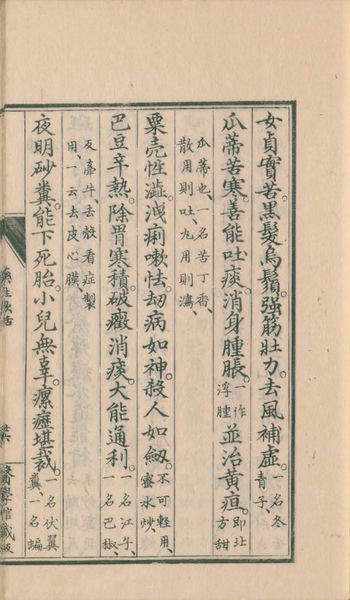 女貞實苦。黑髮烏鬚。强筋壯力。去風補虛。一名冬青子
瓜蒂苦寒。善能吐痰。消身腫脹。一作浮腫並治黄疸。即北方甜
瓜蒂也、一名苦丁香、散用則吐、丸用則瀉
粟壳性澁。洩痢嗽怯。刼病如神。殺人如劔。不可輕用、蜜水炒
巴豆辛熱。除胃寒積。破癥消痰。大能通利。一名江子、一名巴椒、
反牽牛、去殼看症製用、一云去皮心膜
夜明砂糞。能下死胎。小兒無辜。瘰癧堪裁。一名伏翼糞一名蝙